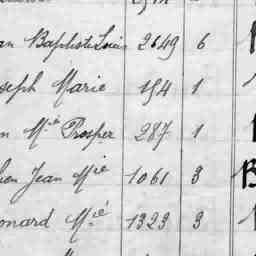 an Baptiste Louis 2649 6
seph Marie 194 1
n Mie Prosper 287 1
hon Jean Mie 1061 3
onard Mie 1323 3